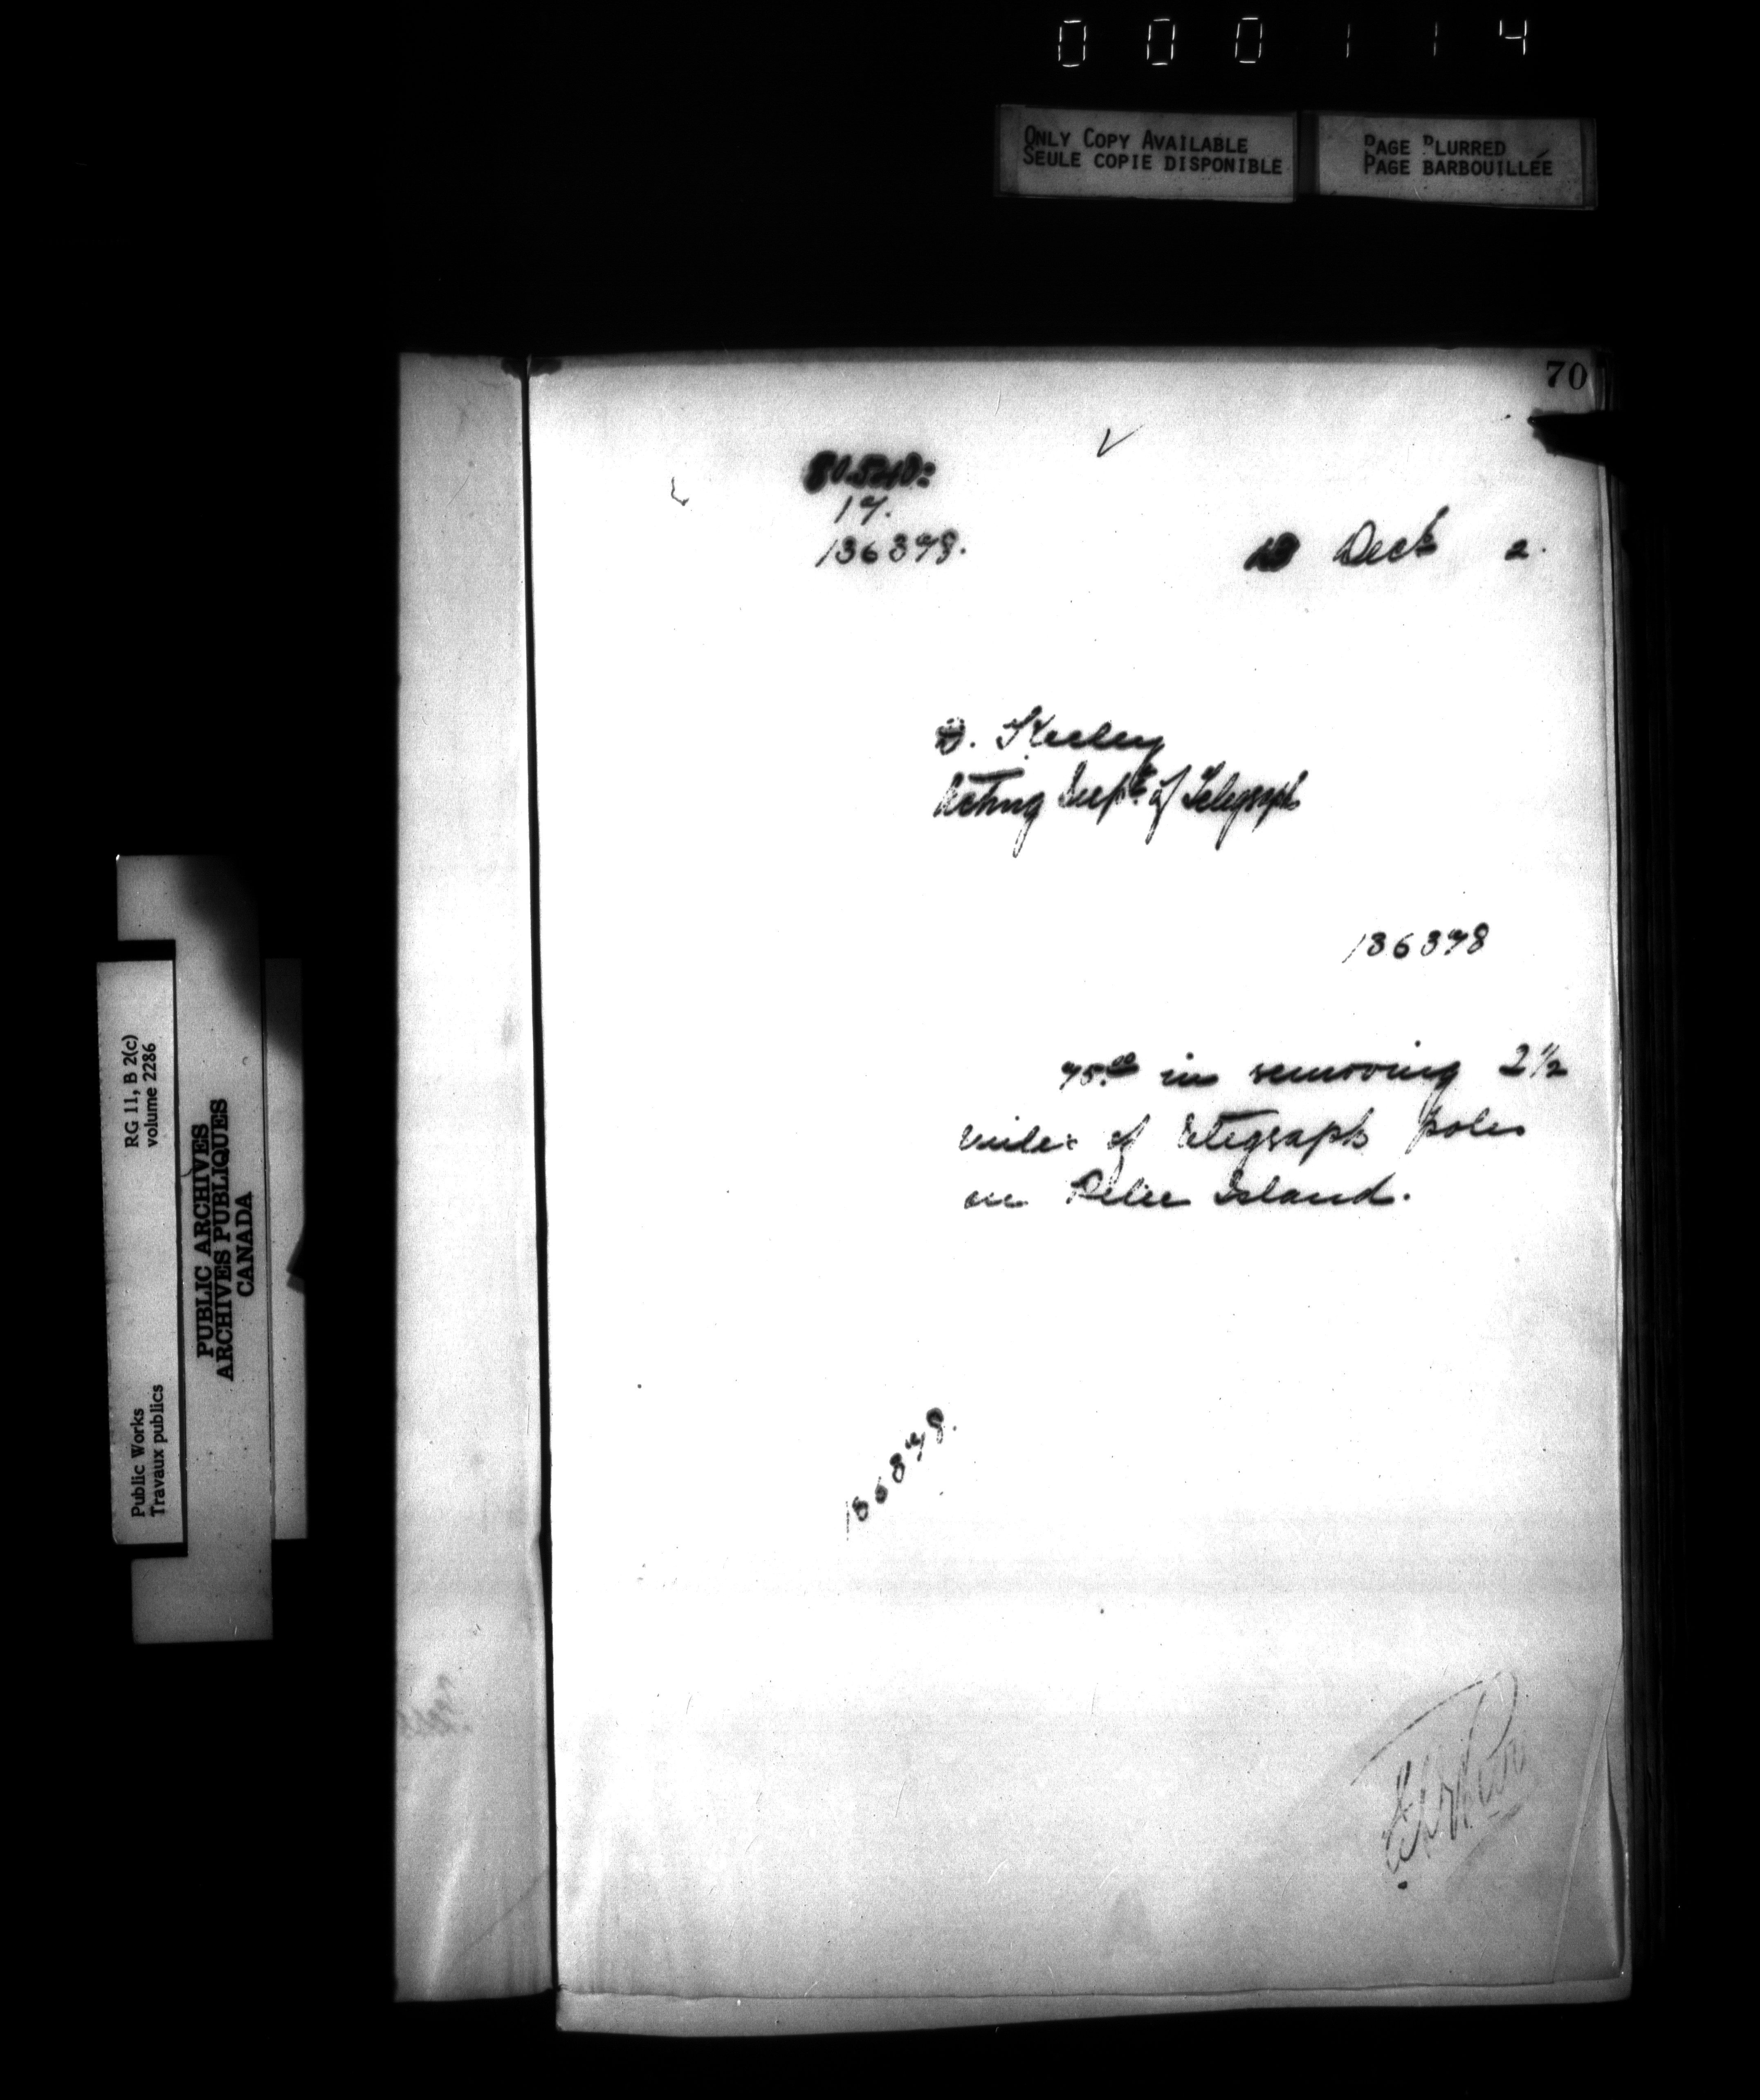 000114
ONLY COPY AVAILABLE
SEULE COPIE DISPONIBLE
PAGE BLURRED
PAGE BARBOUILLÉE
70
17.
136378.
13 Dect 2.
D. Keeley
Acting Supt. of Telegraph
136378
75.00 in removing 2 1/2
miles of telegraph poles
on Pelee Island.
136378.
RG 11, B 2(c)
volume 2286
Public Works
Travaux publics
PUBLIC ARCHIVES
ARCHIVES PUBLIQUES
CANADA